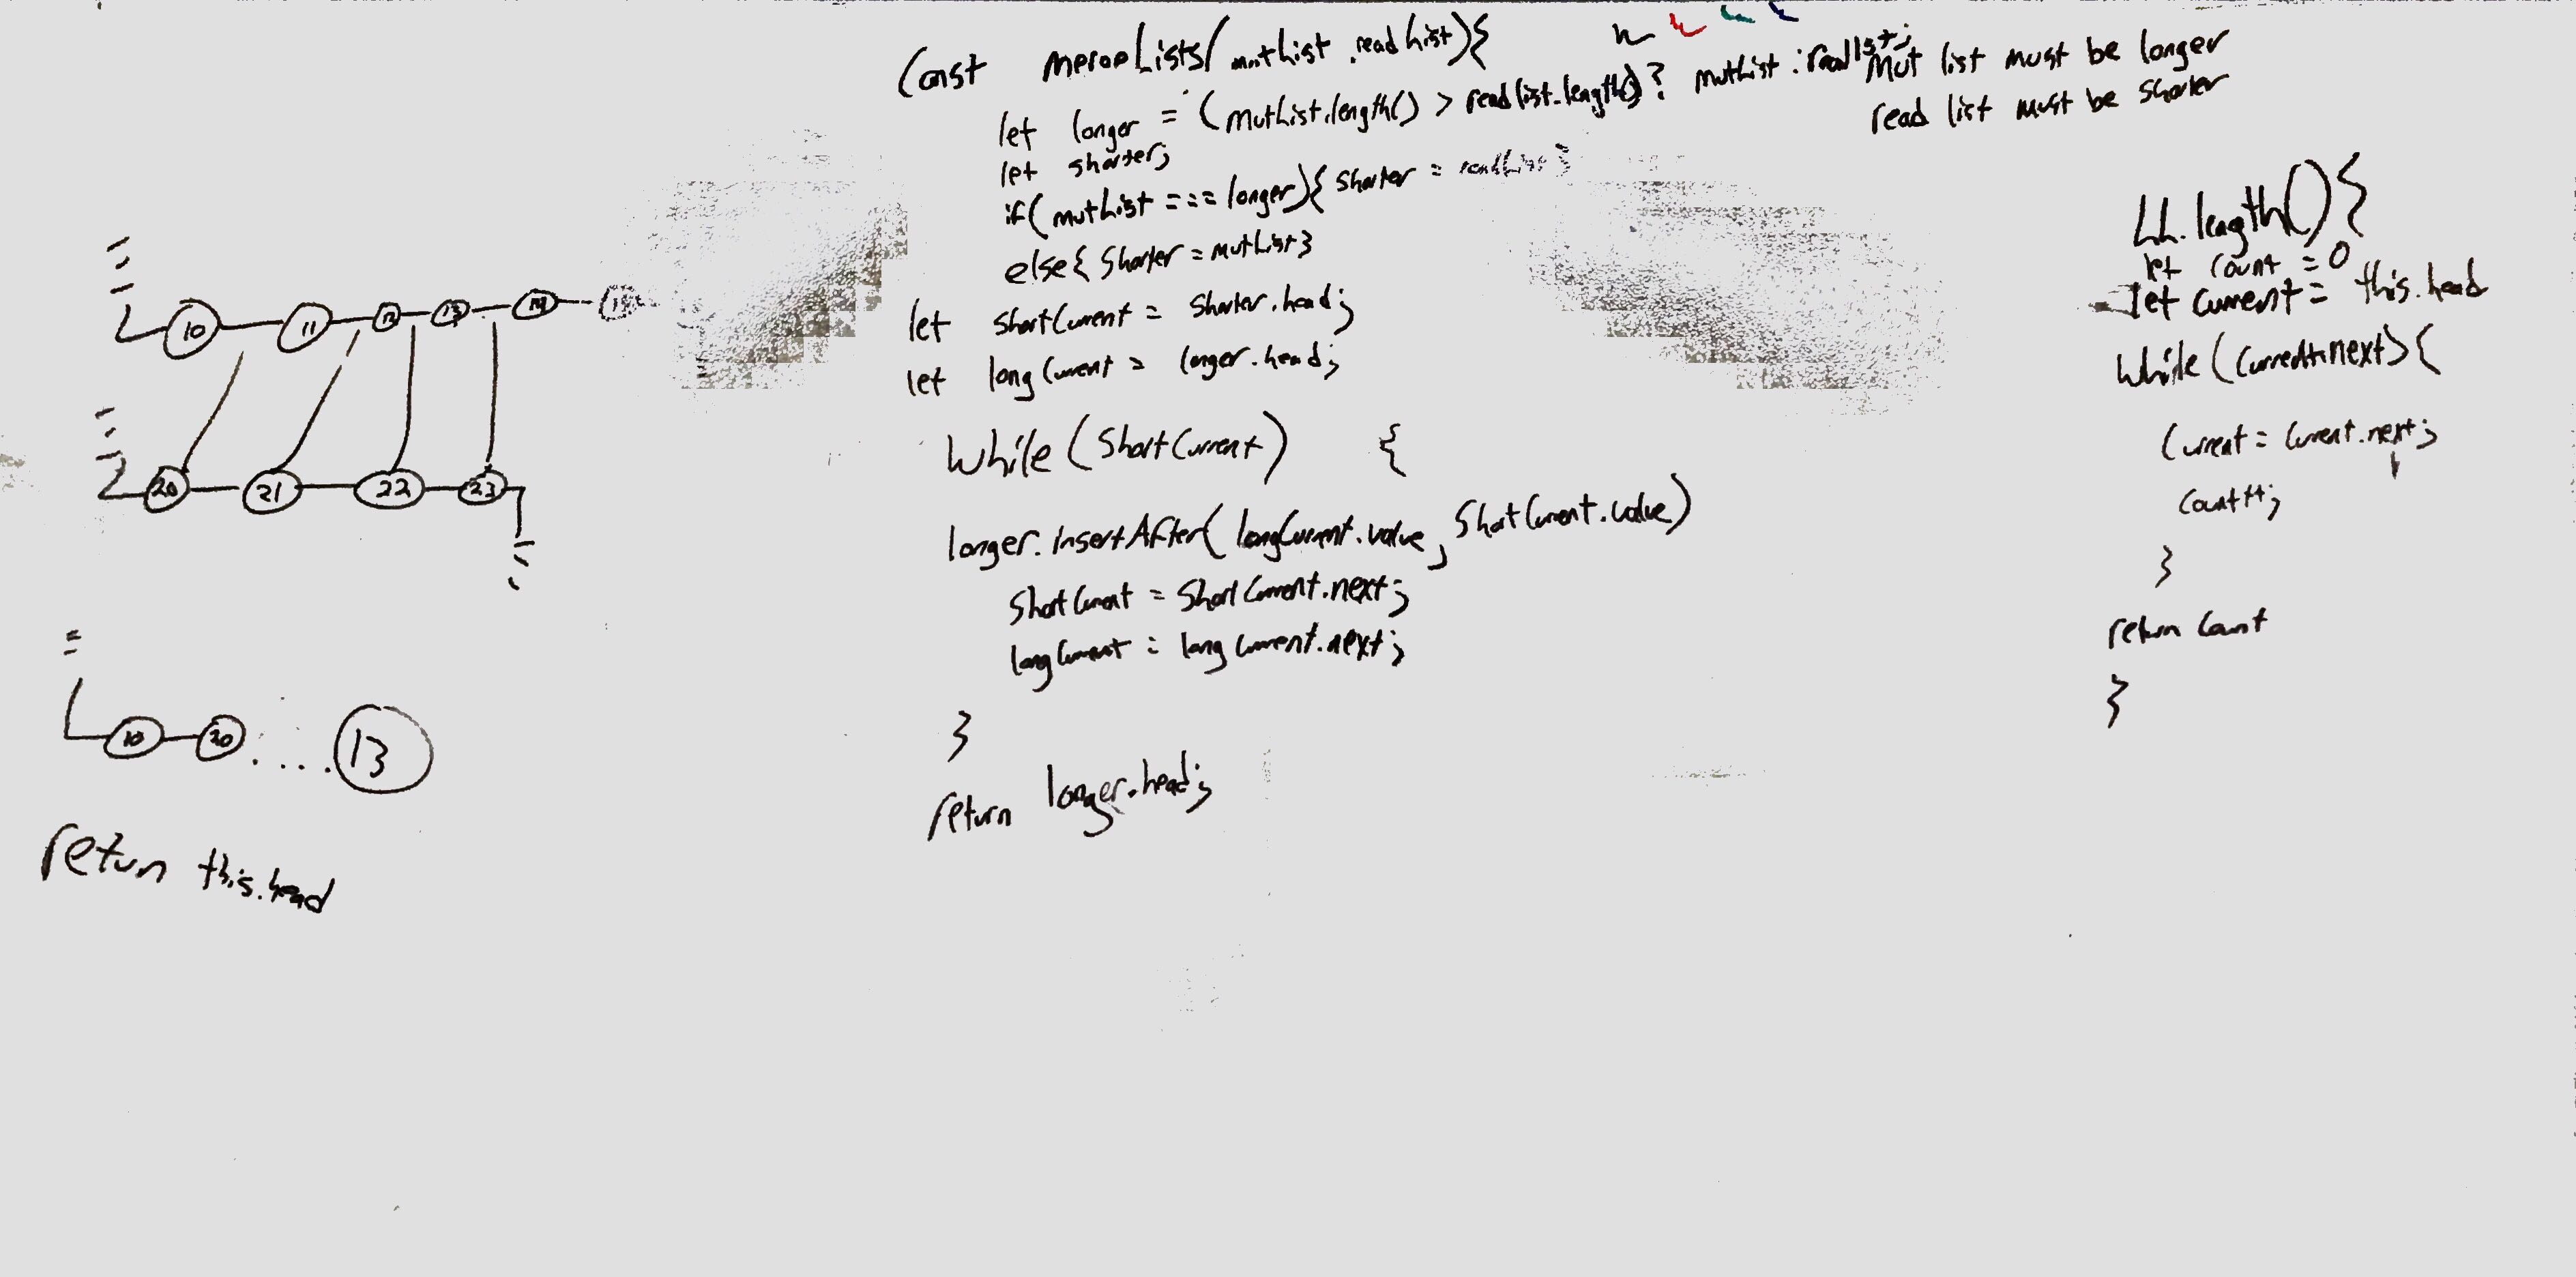 const mergeLists(mutList, readList){
let longer = (mutList.length() > readlist.length()) ? mutList : readlist;
let shorter;
if(mutList === longer){ shorter = readList }
else{ shorter = mutList}
let shortCurrent = shorter.head;
let longCurrent = longer.head;
while (shortCurrent) {
longer.insertAfter(longCurrent.value, shortCurrent.value)
shortCurrent = shortCurrent.next;
longCurrent = longCurrent.next;
}
return longer.head;
Mut list must be longer
read list must be shorter
LL.length(){
let count = 0
let current = this.head
while (current.next){
current = current.next;
count++;
}
return count
}
10 11 12 13 14
20 21 22 23
10 20 .... 13
return this.head